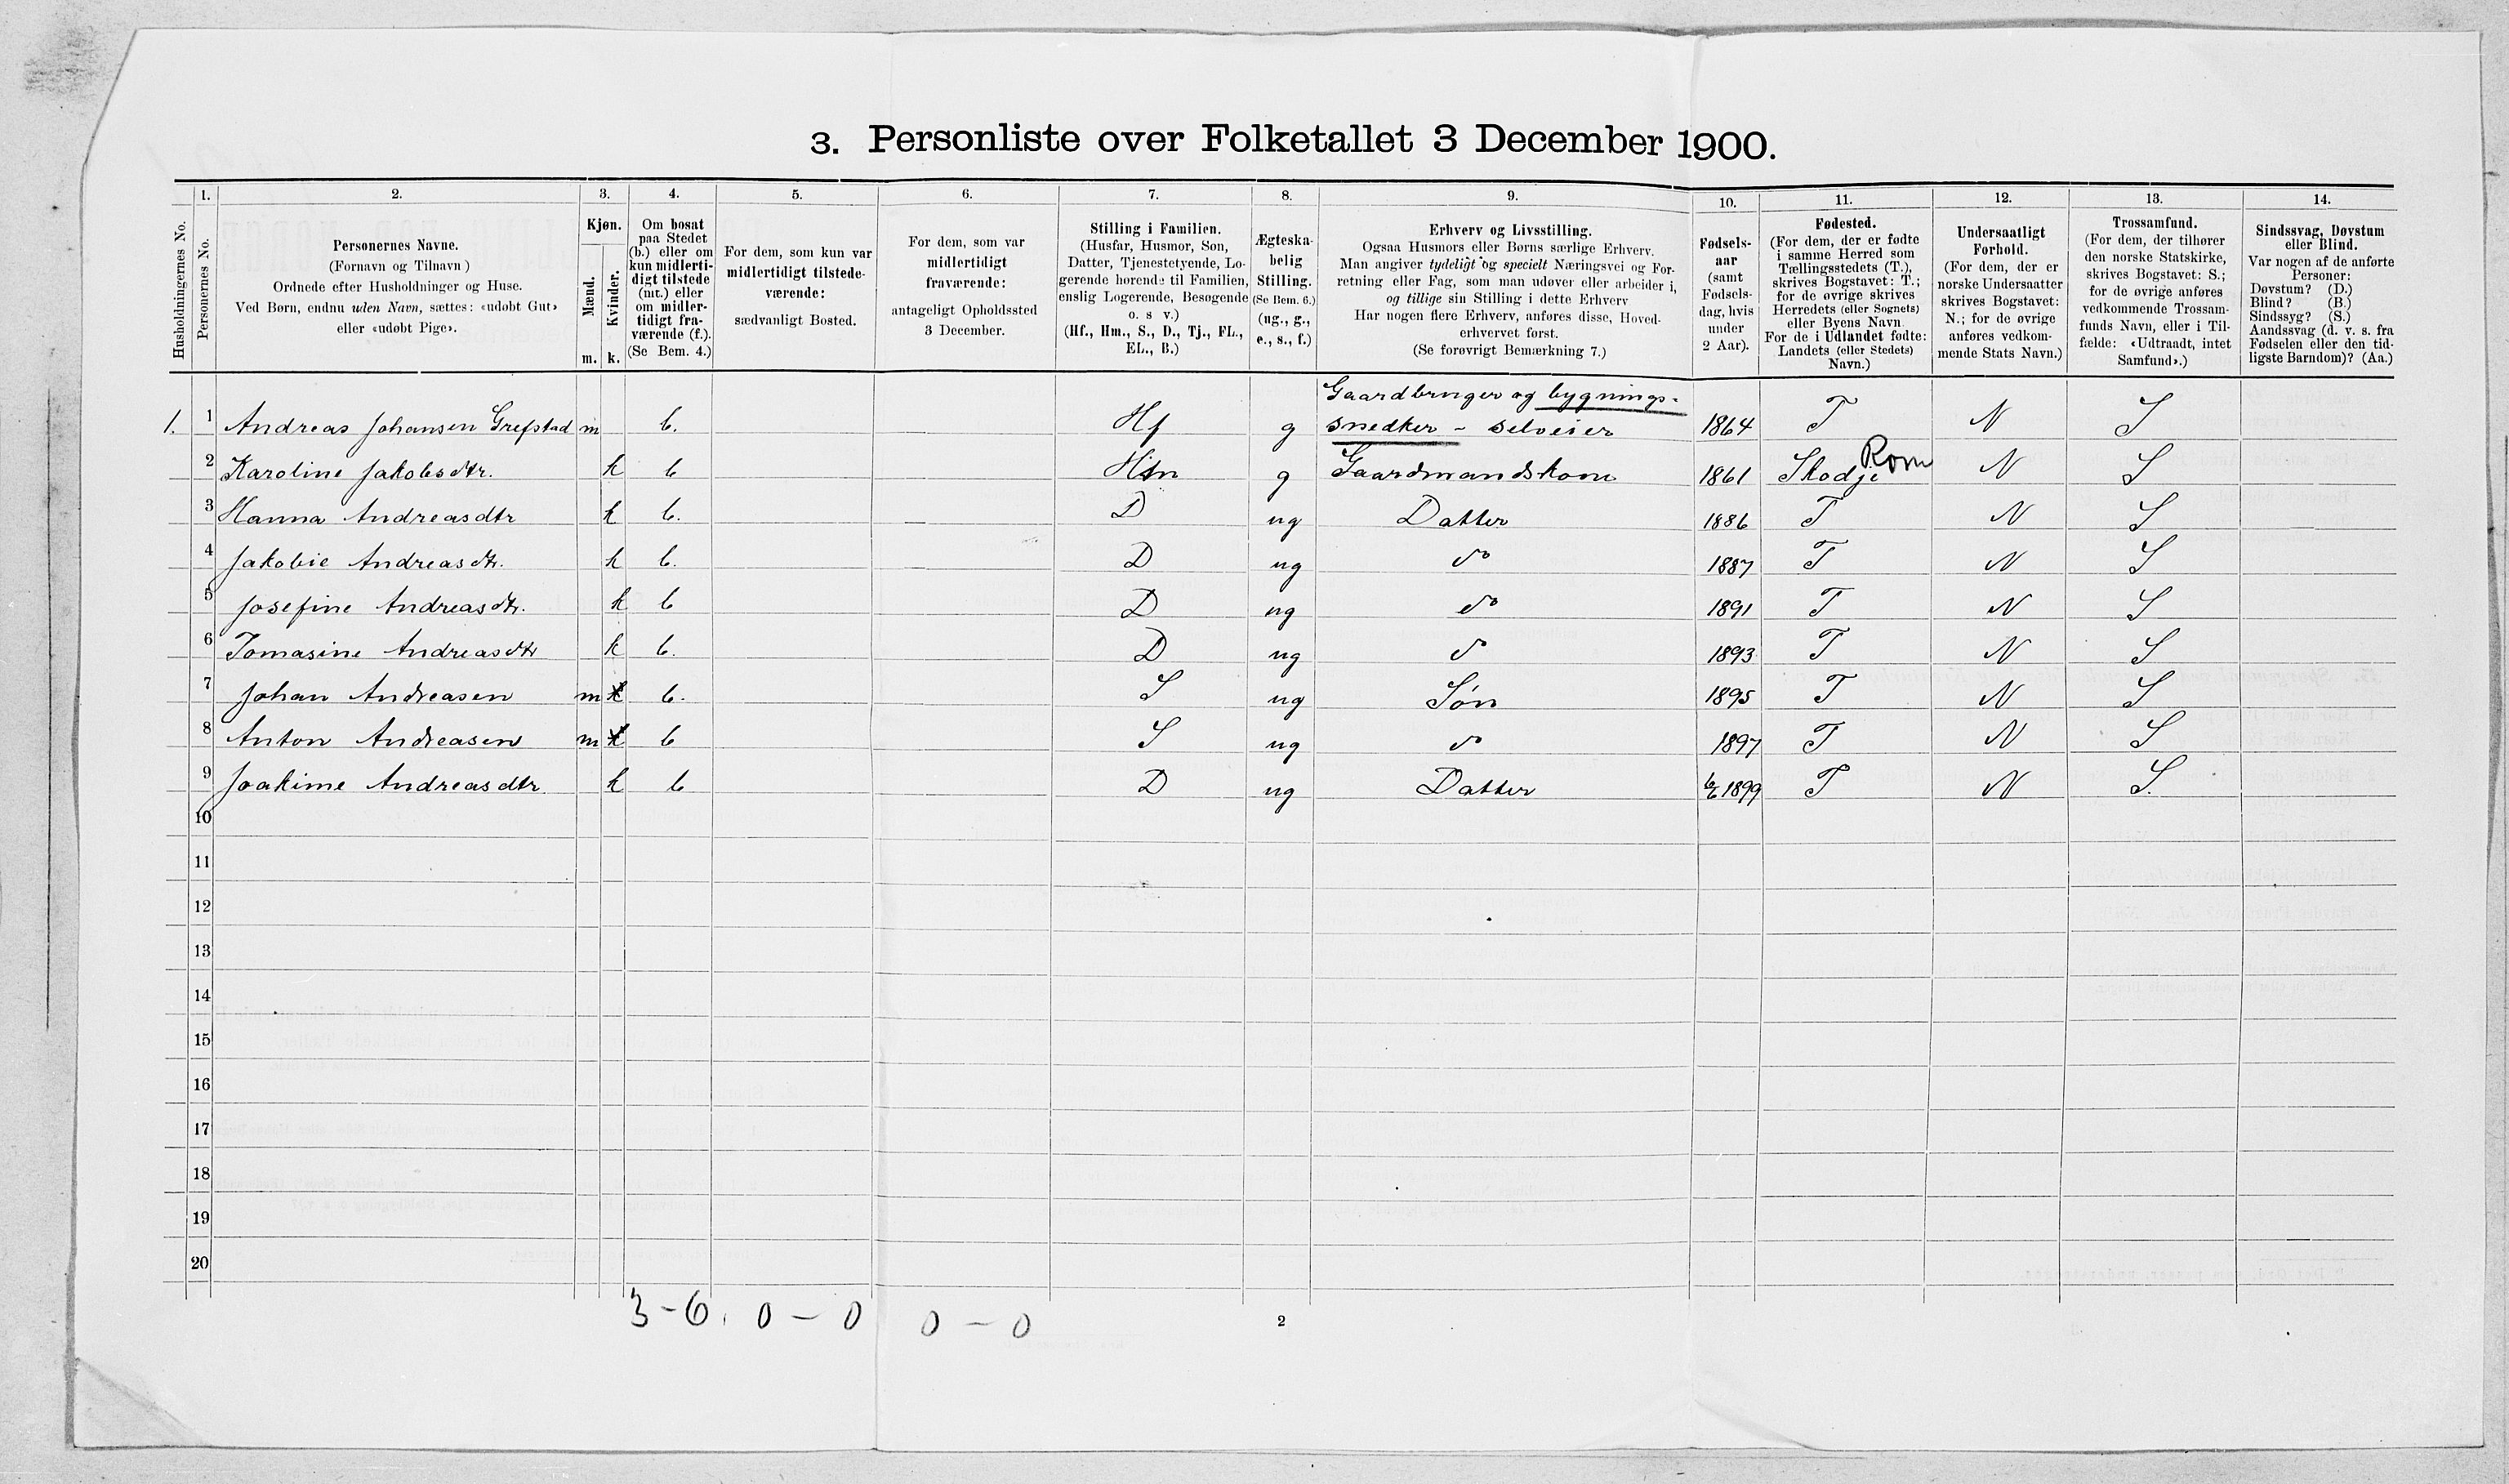 3. Personliste over Folketallet 3 December 1900.
Husholdningernes No.
1.
Personernes No.
2.
Personernes Navne.
(Fornavn og Tilnavn)
Ordnede efter Husholdninger og Huse.
Ved Børn, endnu uden Navn, sættes: «udøbt Gut»
eller «udøbt Pige».
3.
Kjøn.
Mænd.
Kvinder.
m. k.
4.
Om bosat
paa Stedet
(b.) eller om
kun midlerti-
digt tilstede
(mt.) eller
om midler-
tidigt fra-
værende (f.).
(Se Bem. 4.)
5.
For dem, som kun var
midlertidigt tilstede-
værende:
sædvanligt Bosted.
6.
For dem, som var
midlertidigt
fraværende:
antageligt Opholdssted
3 December.
7.
Stilling i Familien.
(Husfar, Husmor, Søn,
Datter, Tjenestetyende, Lo-
gerende hørende til Familien,
enslig Logerende, Besøgende
o. s v.)
(Hf., Hm., S., D., Tj., FL.,
EL., B.)
8.
Ægteska-
belig
Stilling.
(Se Bem. 6.)
(ug., g.,
e., s., f.)
9.
Erhverv og Livsstilling.
Ogsaa Husmors eller Børns særlige Erhverv.
Man angiver tydeligt og specielt Næringsvei og For-
retning eller Fag, som man udøver eller arbeider i,
og tillige sin Stilling i dette Erhverv
Har nogen flere Erhverv, anføres disse, Hoved-
erhvervet først.
(Se forøvrigt Bemærkning 7.)
10.
Fødsels-
aar
(samt
Fødsels-
dag, hvis
under
2 Aar).
11.
Fødested.
(For dem, der er fødte
i samme Herred som
Tællingsstedets (T.),
skrives Bogstavet: T.;
for de øvrige skrives
Herredets (eller Sognets)
eller Byens Navn.
For de i Udlandet fødte:
Landets (eller Stedets)
Navn.)
12.
Undersaatligt
Forhold.
(For dem, der er
norske Undersaatter
skrives Bogstavet:
N.; for de øvrige
anføres vedkom-
mende Stats Navn.)
13.
Trossamfund.
(For dem, der tilhører
den norske Statskirke,
skrives Bogstavet: S.;
for de øvrige anføres
vedkommende Trossam-
funds Navn, eller i Til-
fælde: «Udtraadt, intet
Samfund».)
14.
Sindssvag, Døvstum
eller Blind.
Var nogen af de anførte
Personer:
Døvstum? (D.)
Blind? (B.)
Sindssyg? (S.)
Aandssvag (d. v. s. fra
Fødselen eller den tid-
ligste Barndom)? (Aa.)
Gaardbruger og bygnings-
1. 1 Andreas Johansen Grefstad m b. Hf g snedker - selveier 1864 T N S
2 Karoline Jakobsdtr. k b Hm g Gaardmandskone 1861 Skodje Rom N S
3 Hanna Andreasdtr k b. — D ug Datter 1886 T N S
4 Jakobie Andreasdtr. k b. D ug do 1887 T N S
5 Josefine Andreasdtr. k b D ug do 1891 T N S
6 Tomasine Andreasdtr k b. D ug do 1893 T N S
7 Johan Andreasen m k b. S ug Søn 1895 T N S
8 Anton Andreasen m k b S ug do 1897 T N S
9 Joakime Andreasdtr k b D ug Datter 1899 T N S.
10
11
12
13
14
15
16
17
18
19
20
3 - 6. 0 - 0 0 - 0
2